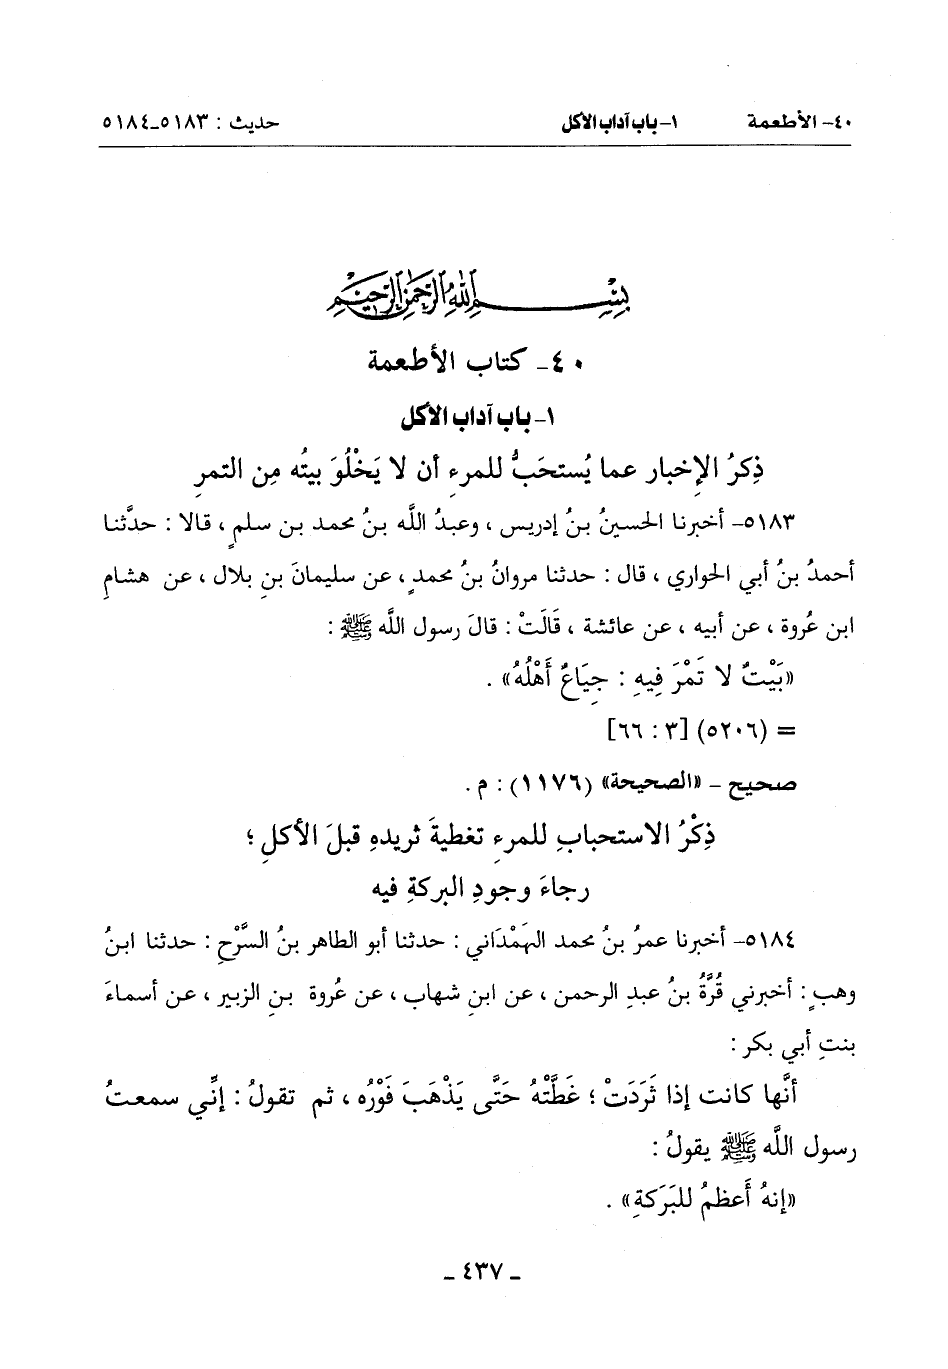 ٤٠- الأطعمة ١- باب آداب الأكل حديث : ٥١٨٣-٥١٨٤
بِسْمِ اللهِ الرَّحْمٰنِ الرَّحِيمِ
٤٠- كتاب الأطعمة
١- باب آداب الأكل
ذِكرُ الإخبار عما يُستحَبُّ للمرءِ أن لا يَخْلُوَ بيتُه مِن التمرِ
٥١٨٣- أخبرنا الحسينُ بنُ إدريس ، وعبدُ اللَّه بنُ محمد بن سلمٍ ، قالا : حدَّثنا
أحمدُ بنُ أبي الحواري ، قال : حدثنا مروانُ بنُ محمدٍ ، عن سليمانَ بنِ بلال ، عن هشامِ
ابن عُروة ، عن أبيه ، عن عائشة ، قَالَتْ : قالَ رسول اللَّه ﷺ :
«بَيْتٌ لا تَمْرَ فِيهِ : جِيَاعٌ أَهْلُهُ» .
= (٥٢٠٦) [٣ : ٦٦]
صحيح - «الصحيحة» (١١٧٦) : م .
ذِكْرُ الاستحبابِ للمرءِ تغطيةَ ثريدهِ قبلَ الأكلِ ؛
رجاءَ وجودِ البركةِ فيه
٥١٨٤- أخبرنا عمرُ بنُ محمد الهَمْدَاني : حدثنا أبو الطاهر بنُ السَّرْحِ : حدثنا ابنُ
وهبٍ : أخبرني قُرَّةُ بنُ عبدِ الرحمن ، عن ابنِ شهاب ، عن عُروة بنِ الزبير ، عن أسماءَ
بنتِ أبي بكر :
أنَّها كانت إذا ثَرَدَتْ ؛ غَطَّتْهُ حَتَّى يَذْهَبَ فَوْرُه ، ثم تقولُ : إنِّي سمعتُ
رسول اللَّه ﷺ يقولُ :
«إنهُ أَعظمُ للبَرَكةِ» .
- ٤٣٧ -